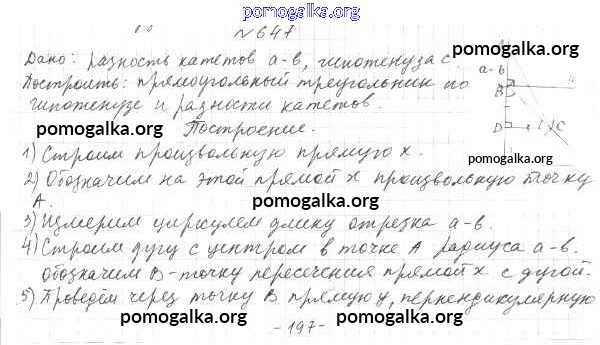 pomogalka.org
№647
Дано: разность катетов a-в, гипотенуза с.
Построить: прямоугольный треугольник по
гипотенузе и разности катетов.
a-в
B
D
C
pomogalka.org pomogalka.org
Построение.
pomogalka.org
1) Строим произвольную прямую x.
2) Обозначим на этой прямой x произвольную точку
A.
pomogalka.org
3) Измерим циркулем длину отрезка a-в.
pomogalka.org pomogalka.org
4) Строим дугу с центром в точке A радиуса a-в.
обозначим B-точку пересечения прямой x с дугой.
pomogalka.org
5) Проведём через точку B прямую y, перпендикулярную
pomogalka.org -197- pomogalka.org
pomogalka.org